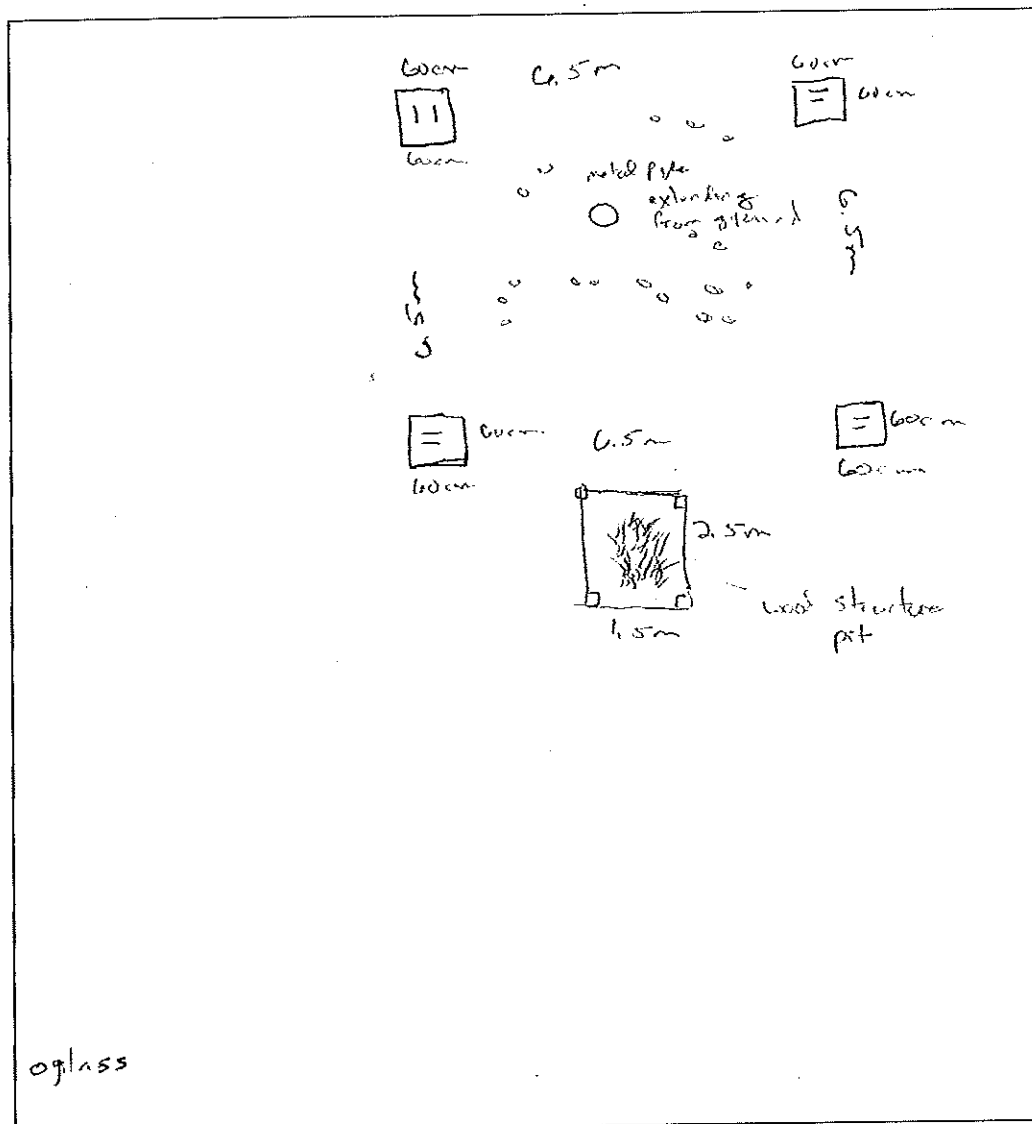 60cm
6.5m
60cm
60cm
60cm
metal pipe
extending
from ground
6.5m
6.5m
60cm
60cm
6.5m
60cm
60cm
2.5m
1.5m
wood structure
pit
glass